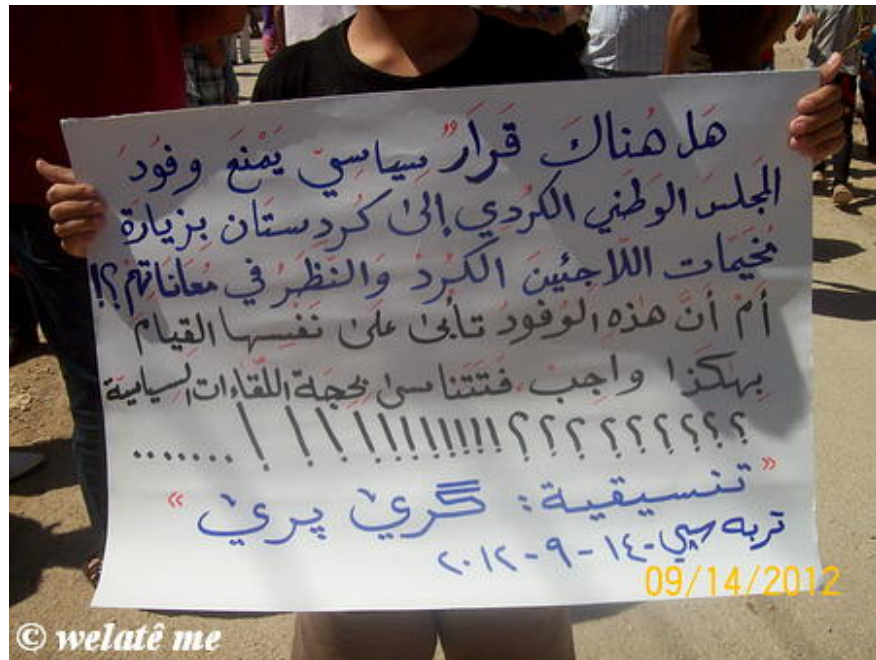 هَل هُناكَ قَرَارٌ سياسيّ يَمْنَع وفُودَ
المَجلس الوَطني الكُردي إلىٰ كُردستَان بزيارَة
مُخيَمات اللّاجئينَ الكُردْ وَالنَّظَرُ في مُعَانَاتِهمْ؟!
أمْ أنَّ هذِهِ الوُفودُ تَأبىٰ علىٰ نَفسِها القيامَ
بِهكذا واجِبْ فَتَتَناسىٰ بِحجةِ اللّقاءات السياسيّة
؟؟؟؟؟؟؟؟؟؟!!!!!!!!!!!!.......
«تنسيقية: گريٚ پريٚ»
تربه سپي-١٤-٩-٢٠١٢
09/14/2012
© welatê me